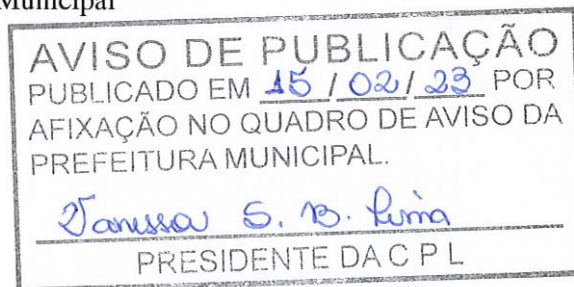 Municipal
AVISO DE PUBLICAÇÃO
PUBLICADO EM 15 / 02 / 23 POR
AFIXAÇÃO NO QUADRO DE AVISO DA
PREFEITURA MUNICIPAL.
Vanessa S. B. Lima
PRESIDENTE DA C P L